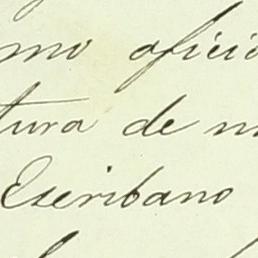 mo oficio
tura de m
Escribano